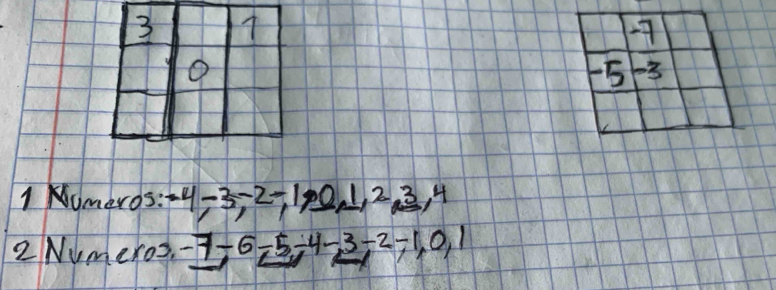 3 1
-7
0
-5 -3
1 Numeros:-4,-3,-2-,1,0,1,2,3,4
2 Numeros.-7,-6-5,-4-3,-2,-1,0,1